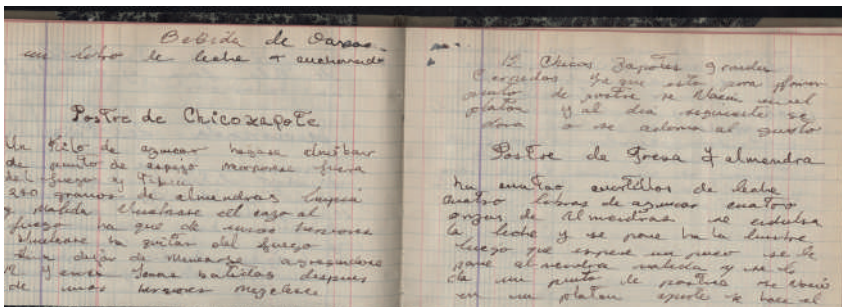 Bebida de
un litro de leche 4 cucharadas
Postre de Chicozapote
Un Kilo de azucar hagase almibar
de punto de espejo menponese fuera
del fuego y
250 gramos de almendras limpia
y molida vuelvase el cazo al
fuego ya que de unos hervores
vuelvase ha quitar del fuego
sin dejar de menearse agreguense
12 Yemas batidas despues
de unos hervores mezclese
12 Chicos Zapotes grandes
ya que esta para
punto de postre se Vacia en el
platon y al dia siguiente se
dora o se adorna al gusto
Postre de Fresa y almendra
En cuatro cuartillos de leche
cuatro libras de azucar cuatro
onzas de almendras se endulsa
la leche y se pone ha la lumbre
luego que espese un poco se le
pone almendra molida y se le
da un punto de postre se Vacia
en un platon aparte se hace el